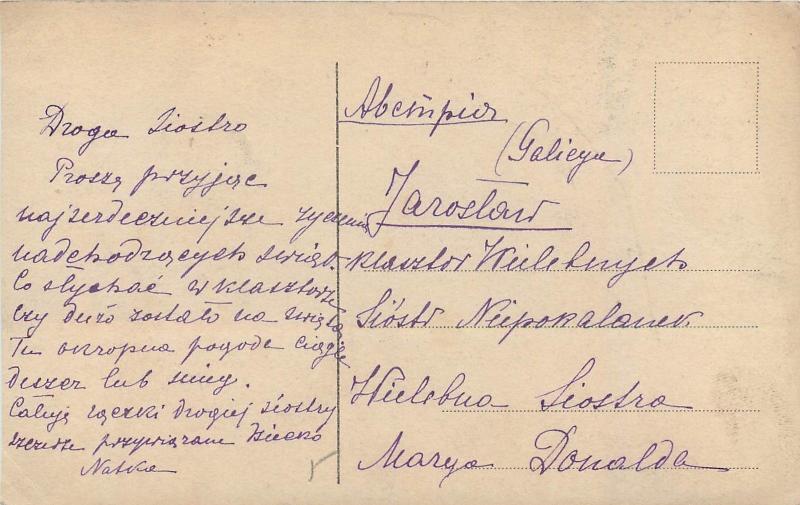 Droga Siostro
Proszę przyjąc
najserdeczniejsze życzenia
nadchodzących świąt.
Co słychać w klasztorze
czy dużo zostało na święta
Tu okropna pogoda ciągle
deszcz lub śnieg.
Całuję rączki drogiej siostry
szczerze przywiązane dziecko
Natka
Австрія
(Galicya)
Jarosław
Klasztor Wielebnych
Sióstr Niepokalanek
Wielebna Siostra
Marya Donalda